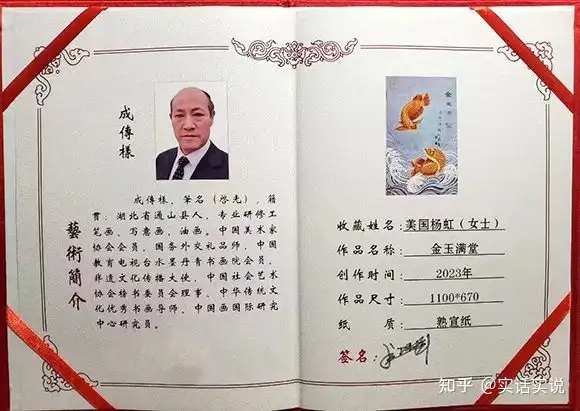 成傳樣
藝術簡介
成傳樣，筆名（啓光），籍
貫：湖北省通山县人，专业研修工
笔画、写意画，油画，中国美术家
协会会员，国务外交礼品师，中国
教育电视台水墨丹青书画院会员，
非遗文化传播大使，中国社会艺术
协会榜书委员会理事、中华传统文
化优秀书画导师，中国画国际研究
中心研究员。
收藏姓名：美国杨虹（女士）
作品名称：金玉满堂
创作时间：2023年
作品尺寸：1100*670
纸质：熟宣纸
签名：
知乎 @实话实说